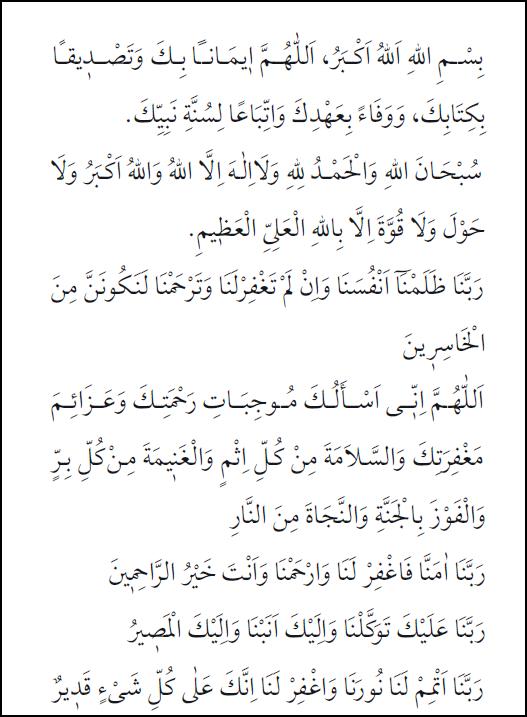 بِسْـمِ اللهِ اَللهُ اَكْـبَرُ، اَللّٰهُـمَّ اٖيمَـانًـا بِـكَ وَتَصْـدٖيقًـا
بِكِتَابِكَ، وَوَفَاءً بِعَهْدِكَ وَاتِّبَاعًا لِسُنَّةِ نَبِيِّكَ.
سُبْحَـانَ اللهِ وَالْحَمْـدُ لِلهِ وَلَااِلٰـهَ اِلَّا اللهُ وَاللهُ اَكْبَرُ وَلَا
حَوْلَ وَلَا قُوَّةَ اِلَّا بِاللهِ الْعَلِيِّ الْعَظٖيمِ.
رَبَّنَا ظَلَمْنَٓا اَنْفُسَنَا وَاِنْ لَمْ تَغْفِرْلَنَا وَتَرْحَمْنَا لَنَكُونَنَّ مِنَ
الْخَاسِرٖينَ
اَللّٰهُـمَّ اِنّٖـى اَسْـأَلُـكَ مُـوجِبَـاتِ رَحْمَتِـكَ وَعَـزَائِـمَ
مَغْفِرَتِكَ وَالسَّلَامَةَ مِنْ كُلِّ اِثْمٍ وَالْغَنٖيمَةَ مِنْ كُلِّ بِرٍّ
وَالْفَوْزَ بِالْجَنَّةِ وَالنَّجَاةَ مِنَ النَّارِ
رَبَّنَا اٰمَنَّا فَاغْفِرْ لَنَا وَارْحَمْنَا وَاَنْتَ خَيْرُ الرَّاحِمٖينَ
رَبَّنَا عَلَيْكَ تَوَكَّلْنَا وَاِلَيْكَ اَنَبْنَا وَاِلَيْكَ الْمَصٖيرُ
رَبَّنَا اَتْمِمْ لَنَا نُورَنَا وَاغْفِرْ لَنَا اِنَّكَ عَلٰى كُلِّ شَىْءٍ قَدٖيرٌ